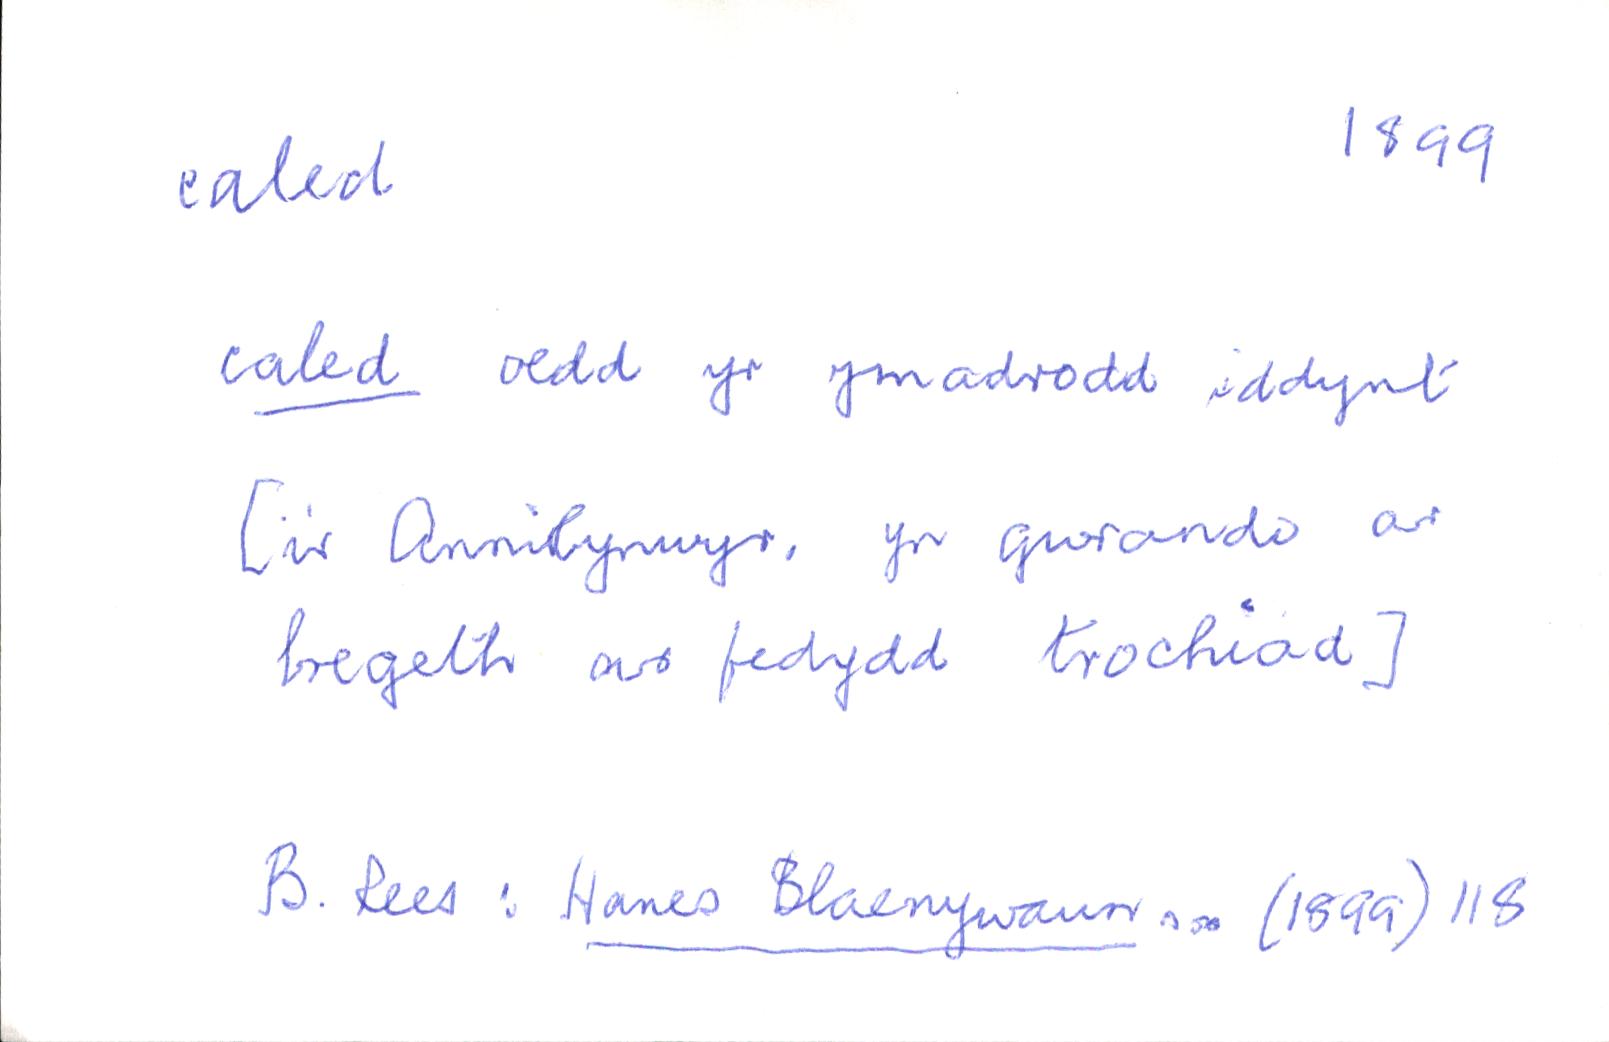 caled 1899
caled oedd yr ymadrodd iddynt
[i'r Annibynwyr, yn gwrando ar
bregeth ar fedydd trochiad]
B. Rees : Hanes Blaenywaun ... (1899) 118